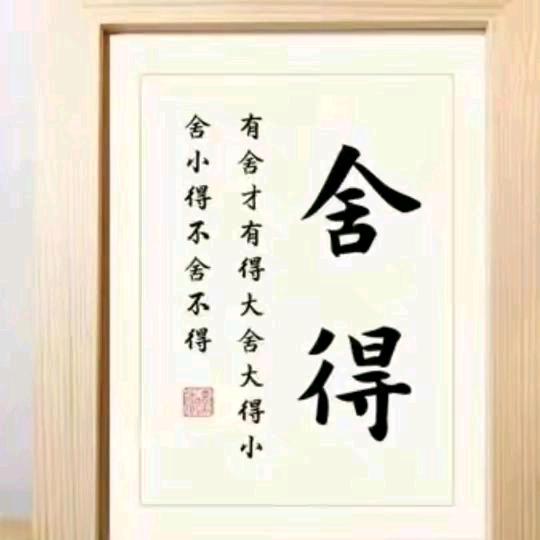 舍得
有舍才有得大舍大得小
舍小得不舍不得